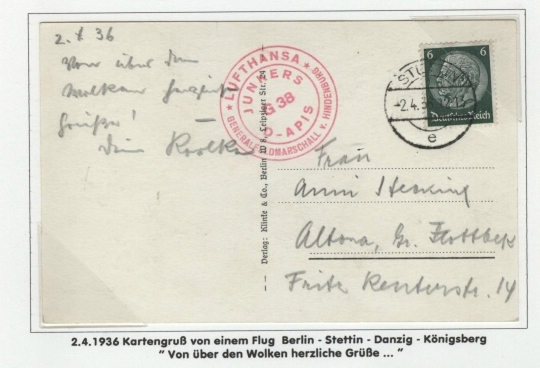 2. 4. 36
Von über den
Wolken herzliche
Grüße!
Dein
LUFTHANSA
JUNKERS
G 38
D-APIS
GENERALFELDMARSCHALL v. HINDENBURG
6 6
Deutsches Reich
-2.4.3
e
Verlag: Klinte & Co., Berlin W 8, Leipziger Str. 24
Frau
Anni
Altona, Gr. Flottbek
Fritz Reuterstr. 14
2.4.1936 Kartengruß von einem Flug Berlin - Stettin - Danzig - Königsberg
" Von über den Wolken herzliche Grüße ... "